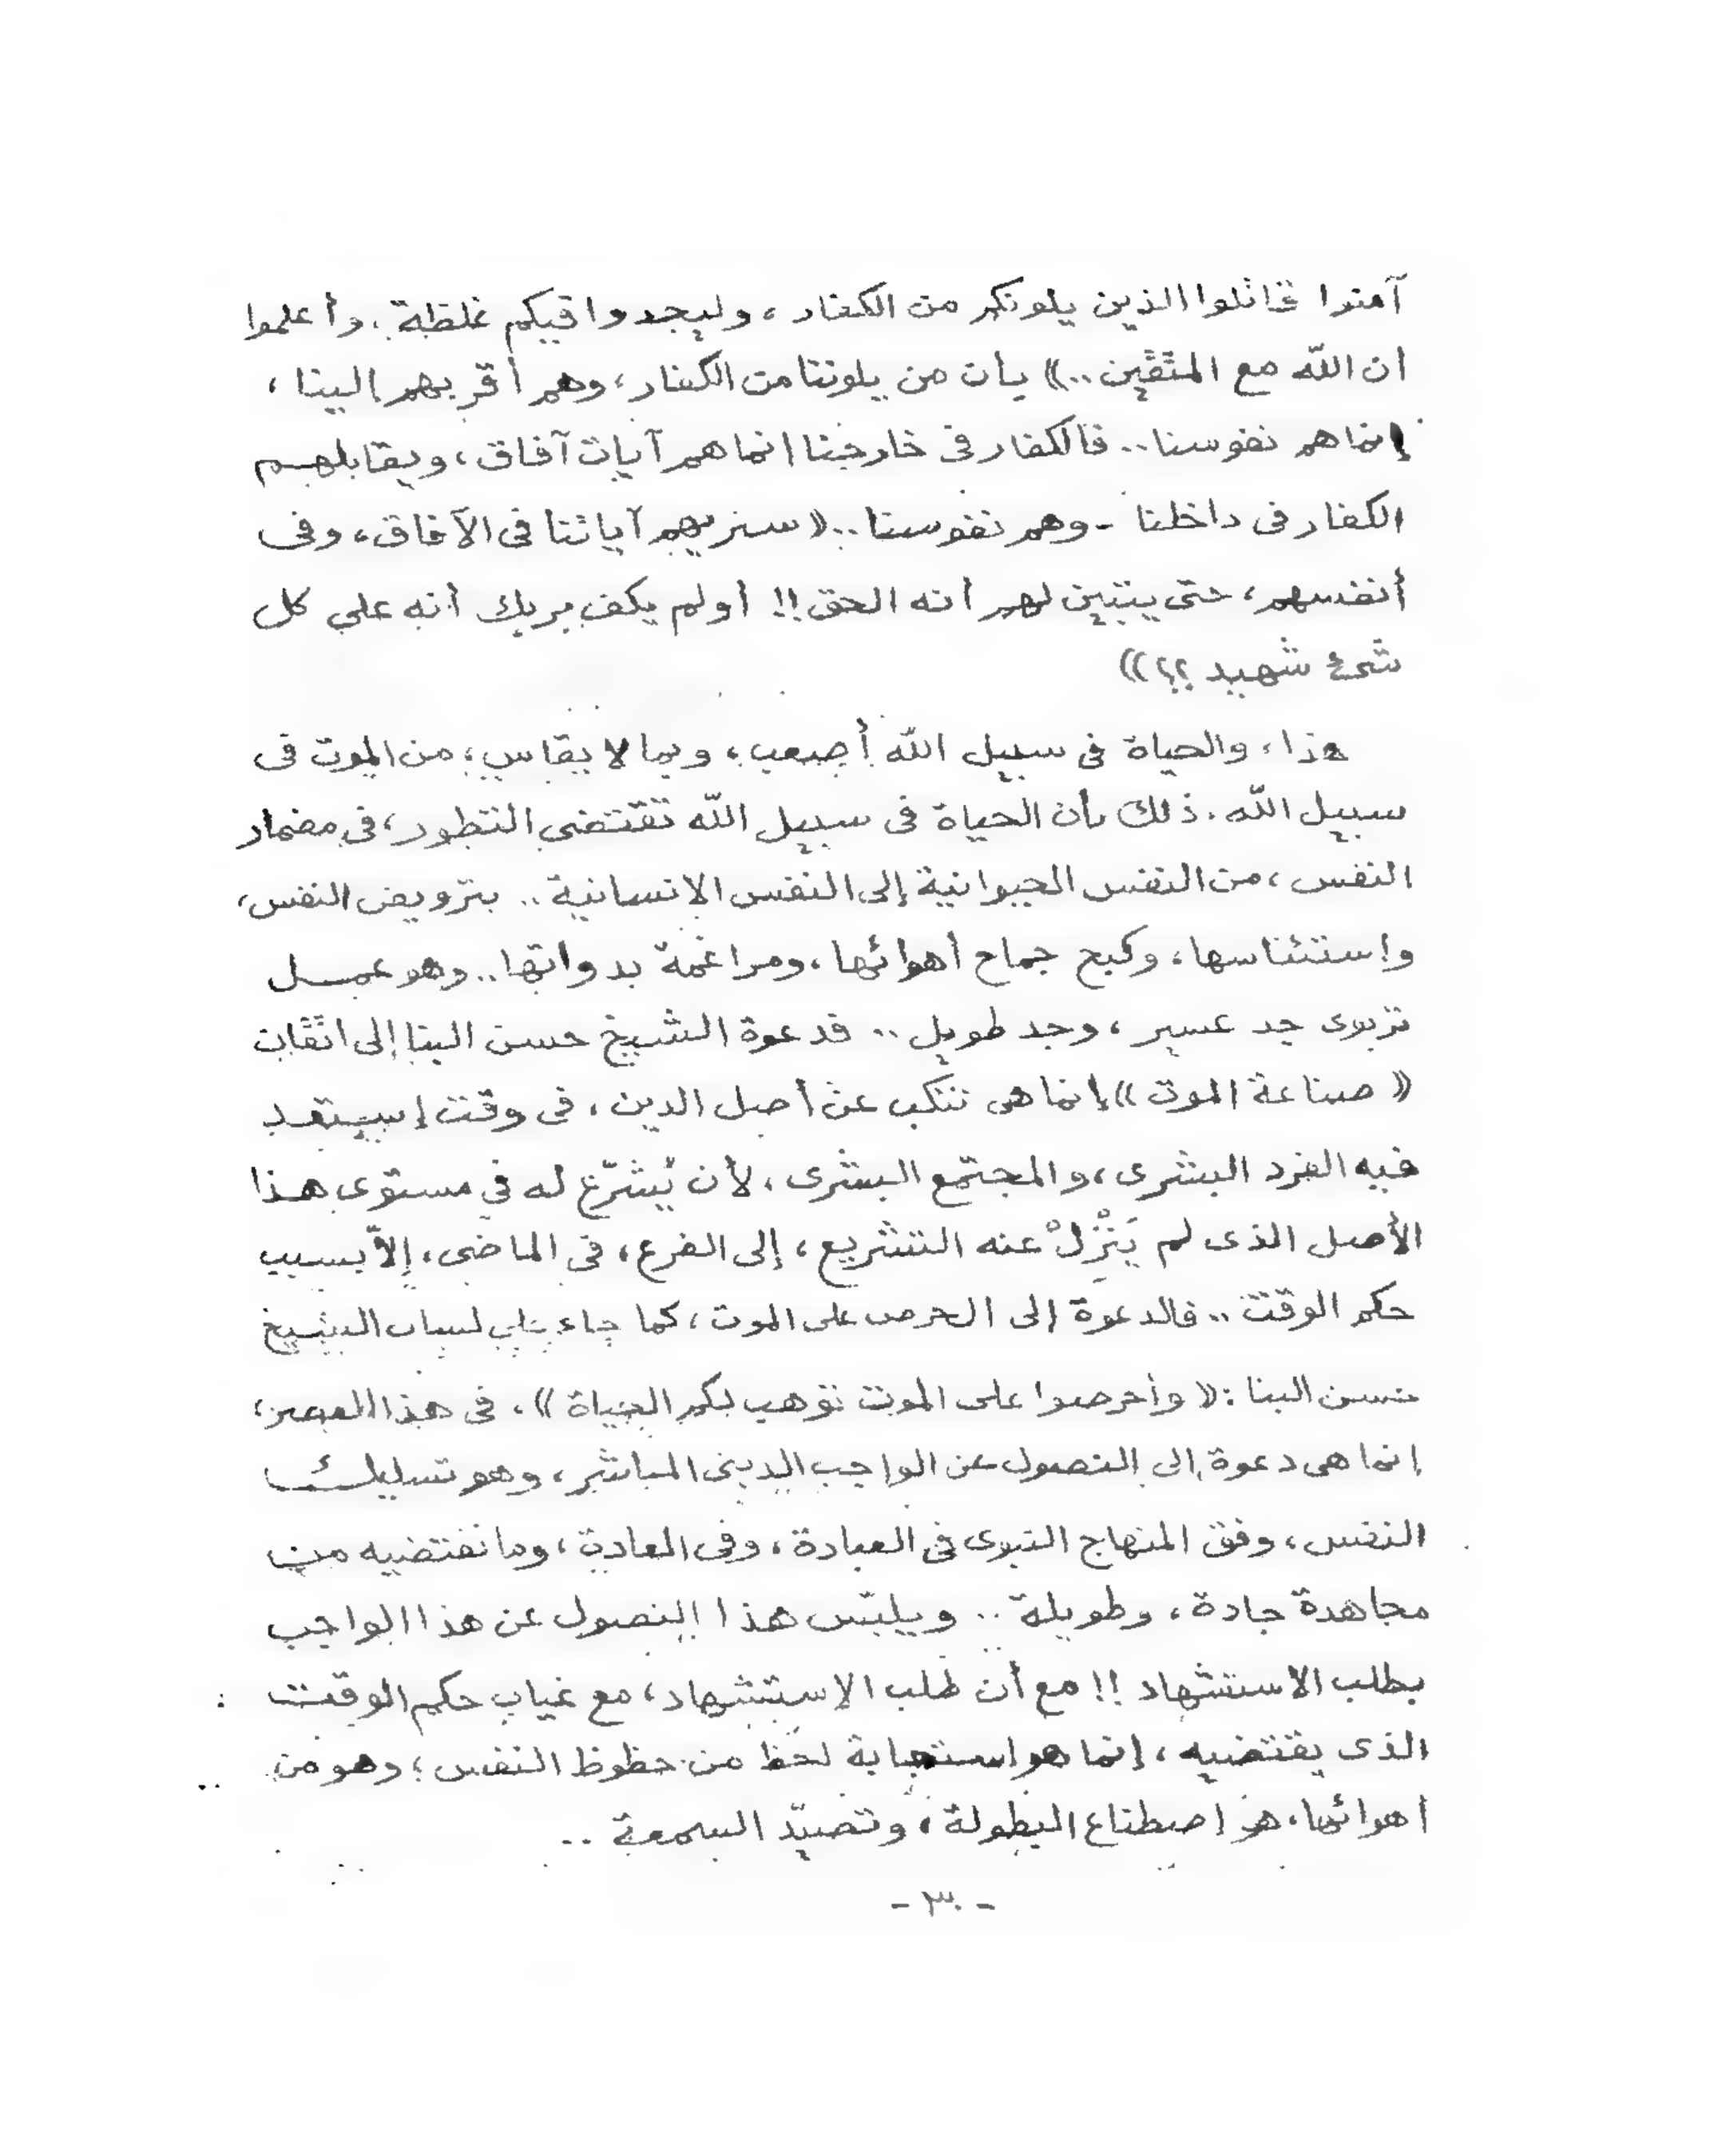 آمنوا قاتلوا الذين يلونكم من الكفار ، وليجدوا فيكم غلظة . وأعلموا
أن الله مع المتّقين .. )) بأن من يلوننا من الكفار ، وهم أقربهم إلينا ،
إنما هم نفوسنا .. فالكفار فى خارجنا انما هم آيات آفاق ، ويقابلهم
الكفار فى داخلنا - وهم نفوسنا .. (( سنريهم آياتنا فى الآفاق ، وفى
أنفسهم ، حتى يتبين لهم أنه الحق !! أولم يكف بربك أنه على كل
شىء شهيد ؟؟ ))
هذا ، والحياة فى سبيل الله أصعب ، وبما لا يقاس ، من الموت فى
سبيل الله . ذلك بأن الحياة فى سبيل الله تقتضى التطور ، فى مضمار
النفس ، من النفس الحيوانية إلى النفس الانسانية .. بترويض النفس ،
وإستئناسها ، وكبح جماح أهوائها ، ومراغمة بدواتها .. وهو عمل
تربوى جد عسير ، وجد طويل .. فدعوة الشيخ حسن البنا إلى اتّقان
(( صناعة الموت )) إنما هى تنكب عن أصل الدين ، فى وقت إستعد
فيه الفرد البشرى ، والمجتمع البشرى ، لأن يُشرّع له فى مستوى هذا
الأصل الذى لم يَنْزلْ عنه التشريع ، إلى الفرع ، فى الماضى ، إلاّ بسبب
حكم الوقت .. فالدعوة إلى الحرص على الموت ، كما جاء على لسان الشيخ
حسن البنا : (( وأحرصوا على الموت توهب لكم الحياة )) ، فى هذا العصر ،
إنما هى دعوة إلى النصول عن الواجب الدينى المباشر ، وهو تسليك
النفس ، وفق المنهاج النبوى فى العبادة ، وفى العادة ، وما تقتضيه من
مجاهدة جادة ، وطويلة .. ويلبّس هذا النصول عن هذا الواجب
بطلب الاستشهاد !! مع أن طلب الإستشهاد ، مع غياب حكم الوقت
الذى يقتضيه ، إنما هو استجابة لحظ من حظوظ النفس ؛ وهو من
أهوائها ، هو إصطناع البطولة ، وتصيّد السمعة ..
- ٣٠ -